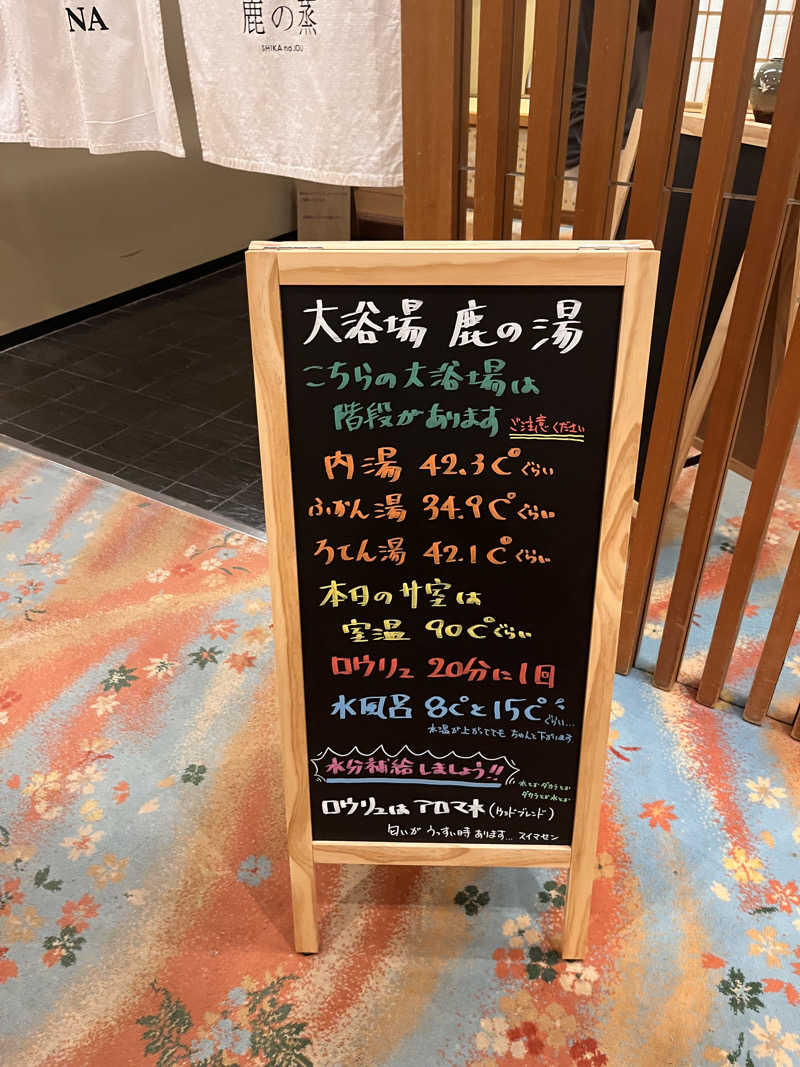 NA
鹿の蒸
SHIKA no JOU
大浴場 鹿の湯
こちらの大浴場は
階段があります ご注意ください
内湯 42.3℃ぐらい
ふかん湯 34.9℃ぐらい
ろてん湯 42.1℃ぐらい
本日のサ室は
室温 90℃ぐらい
ロウリュ 20分に1回
水風呂 8℃と15℃ぐらい...
水温が上がってても ちゃんと下がります
水分補給しましょう!!
水とか ダカラとか
ダカラとか水とか
ロウリュは アロマ水(ウッドブレンド)
匂いが うっすい時 あります... スイマセン